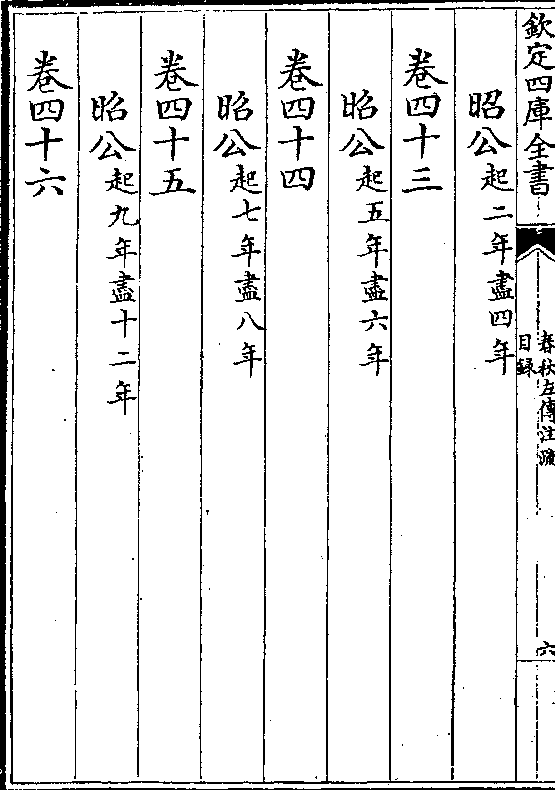 欽定四庫全書
春秋左傳注疏
目録
六
昭公起二年盡四年
卷四十三
昭公起五年盡六年
卷四十四
昭公起七年盡八年
卷四十五
昭公起九年盡十二年
卷四十六